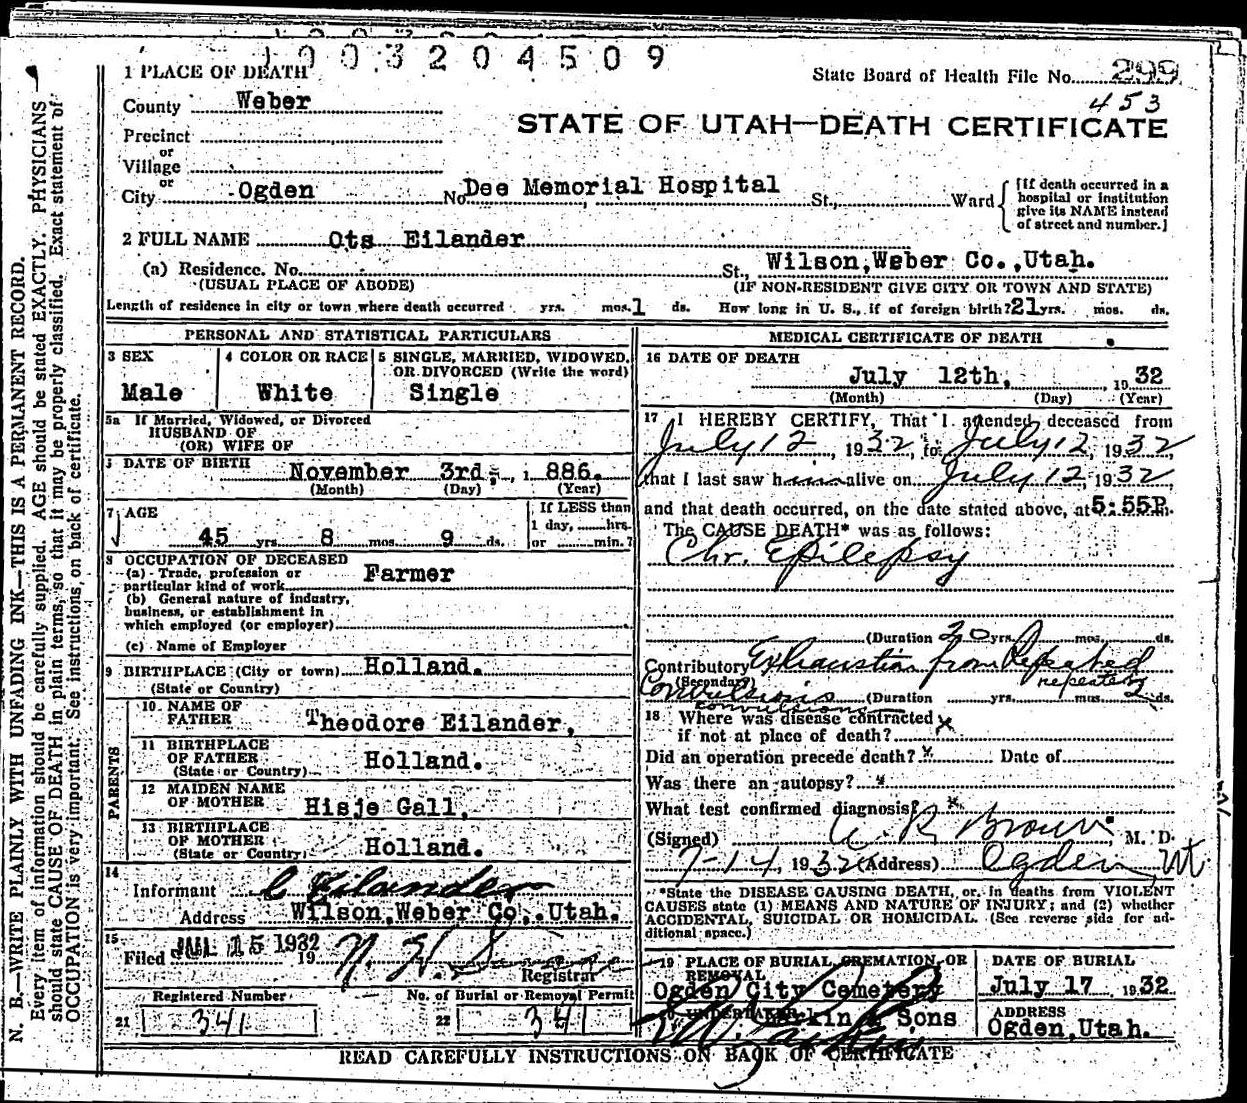 1003204509
1 PLACE OF DEATH
State Board of Health File No. 299
453
County Weber
STATE OF UTAH—DEATH CERTIFICATE
Precinct
or
Village
or
City Ogden No Dee Memorial Hospital St., Ward
[If death occurred in a
hospital or institution
give its NAME instead
of street and number.]
2 FULL NAME Ots Eilander
(a) Residence. No. St., Wilson, Weber Co., Utah.
(USUAL PLACE OF ABODE) (IF NON-RESIDENT GIVE CITY OR TOWN AND STATE)
Length of residence in city or town where death occurred yrs. mos. 1 ds. How long in U. S., if of foreign birth? 21 yrs. mos. ds.
PERSONAL AND STATISTICAL PARTICULARS
3 SEX
Male
4 COLOR OR RACE
White
5 SINGLE, MARRIED, WIDOWED,
OR DIVORCED (Write the word)
Single
5a If Married, Widowed, or Divorced
HUSBAND OF
(OR) WIFE OF
DATE OF BIRTH November 3rd, 1886.
(Month) (Day) (Year)
7 AGE
45 yrs 8 mos. 9 ds.
If LESS than
1 day, hrs.
or min.?
8 OCCUPATION OF DECEASED
(a) Trade, profession or
particular kind of work Farmer
(b) General nature of industry,
business, or establishment in
which employed (or employer)
(c) Name of Employer
9 BIRTHPLACE (City or town) Holland.
(State or Country)
PARENTS
10 NAME OF
FATHER Theodore Eilander,
11 BIRTHPLACE
OF FATHER Holland.
(State or Country)
12 MAIDEN NAME
OF MOTHER Hisje Gall,
13 BIRTHPLACE
OF MOTHER Holland.
(State or Country)
14
Informant C Eilander
Address Wilson, Weber Co,. Utah.
15
Filed JUL 15 1932 19 N. H.
Registrar
Registered Number
21 341
No. of Burial or Removal Permit
22 341
MEDICAL CERTIFICATE OF DEATH
16 DATE OF DEATH
July 12th, 1932
(Month) (Day) (Year)
17 I HEREBY CERTIFY, That I attended deceased from
July 12, 1932, to July 12, 1932
that I last saw him alive on July 12, 1932
and that death occurred, on the date stated above, at 5:55P.
The CAUSE DEATH* was as follows:
Chr. Epilepsy
(Duration 30 yrs. mos. ds.
Contributory Exhaustion from Repeated
(Secondary) repeating
Convulsions (Duration yrs. mos 2 ds.
convulsions
18 Where was disease contracted
if not at place of death? x
Did an operation precede death? x Date of
Was there an autopsy? x
What test confirmed diagnosis? x
(Signed) A. R. Brown M. D.
7-14, 1932 (Address) Ogden, Ut
*State the DISEASE CAUSING DEATH, or, in deaths from VIOLENT
CAUSES state (1) MEANS AND NATURE OF INJURY; and (2) whether
ACCIDENTAL, SUICIDAL OR HOMICIDAL. (See reverse side for ad-
ditional space.)
19 PLACE OF BURIAL, CREMATION, OR
REMOVAL
Ogden City Cemetery
DATE OF BURIAL
July 17, 1932
UNDERTAKER Larkin & Sons
ADDRESS
Ogden, Utah.
READ CAREFULLY INSTRUCTIONS ON BACK OF CERTIFICATE
N. B.—WRITE PLAINLY WITH UNFADING INK—THIS IS A PERMANENT RECORD.
Every item of information should be carefully supplied. AGE should be stated EXACTLY. PHYSICIANS
should state CAUSE OF DEATH in plain terms, so that it may be properly classified. Exact statement of
OCCUPATION is very important. See instructions on back of certificate.